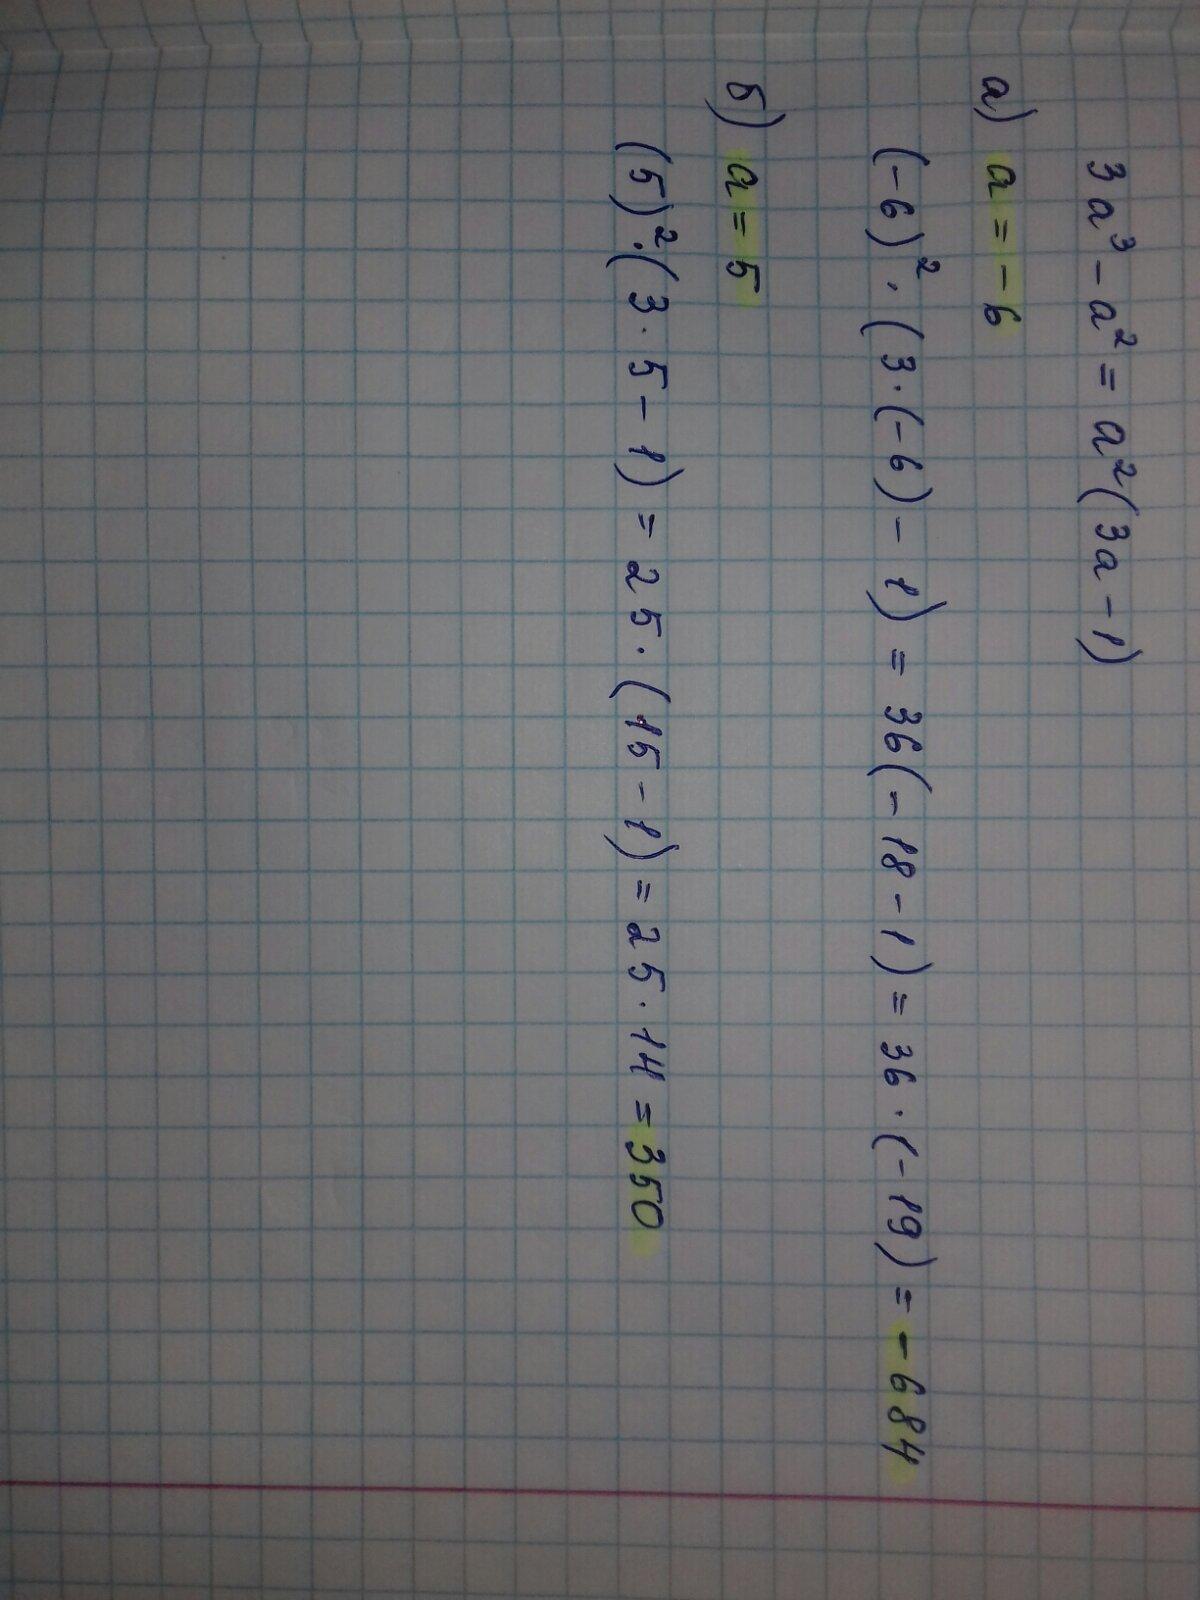 3a³ - a² = a²(3a - 1)
а) a = - 6
(-6)² · (3 · (-6) - 1) = 36(- 18 - 1) = 36 · (- 19) = - 684
б) a = 5
(5)² · (3 · 5 - 1) = 25 · (15 - 1) = 25 · 14 = 350